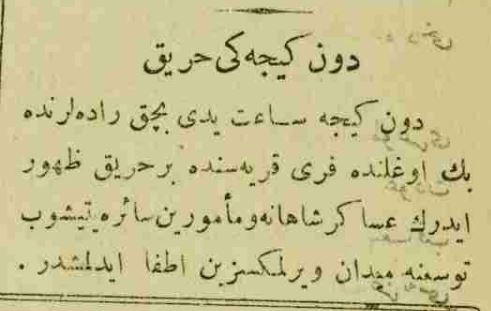 دون كیجه‌كی حریق
دون كیجه ساعت یدی بچق راده‌لرنده
بك اوغلنده فری قریه‌سنده بر حریق ظهور
ایدرك عساكر شاهانه و مأمورین سائره یتیشوب
توسعنه میدان ویرلمكسزین اطفا ایدلمشدر .